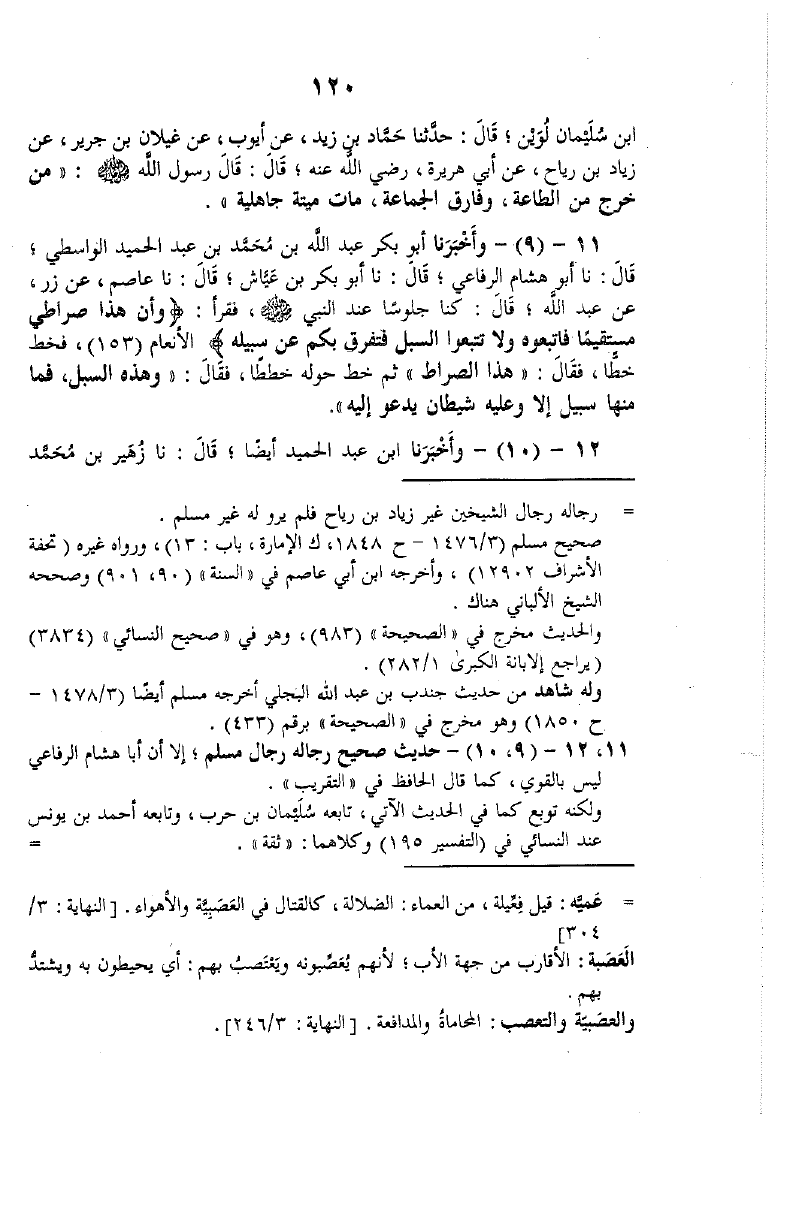 ١٢٠
ابن سُلَيْمان لُوَيْن ؛ قَالَ : حدَّثنا حَمَّاد بن زيد ، عن أيوب ، عن غيلان بن جرير ، عن
زياد بن رياح ، عن أبي هريرة ، رضي اللَّه عنه ؛ قَالَ : قَالَ رسول اللَّه ﷺ : « من
خرج من الطاعة ، وفارق الجماعة ، مات ميتة جاهلية » .
١١ – (٩) – وأَخْبَرَنا أبو بكر عبد اللَّه بن مُحَمَّد بن عبد الحميد الواسطي ؛
قَالَ : نا أبو هشام الرفاعي ؛ قَالَ : نا أبو بكر بن عَيَّاش ؛ قَالَ : نا عاصم ، عن زر ،
عن عبد اللَّه ؛ قَالَ : كنا جلوسًا عند النبي ﷺ ، فقرأ : ﴿ وأن هذا صراطي
مستقيمًا فاتبعوه ولا تتبعوا السبل فتفرق بكم عن سبيله ﴾ الأنعام (١٥٣) ، فخط
خطًّا ، فقَالَ : « هذا الصراط » ثم خط حوله خططًا ، فقَالَ : « وهذه السبل، فما
منها سبيل إلا وعليه شيطان يدعو إليه».
١٢ – (١٠) – وأَخْبَرَنا ابن عبد الحميد أيضًا ؛ قَالَ : نا زُهَير بن مُحَمَّد
= رجاله رجال الشيخين غير زياد بن رياح فلم يرو له غير مسلم .
صحيح مسلم (١٤٧٦/٣ – ح ١٨٤٨، ك الإمارة ، باب : ١٣) ، ورواه غيره ( تحفة
الأشراف ١٢٩٠٢) ، وأخرجه ابن أبي عاصم في «السنة» (٩٠، ٩٠١) وصححه
الشيخ الألباني هناك .
والحديث مخرج في «الصحيحة» (٩٨٣) ، وهو في «صحيح النسائي» (٣٨٣٤)
(يراجع إلابانة الكبرىٰ ٢٨٢/١) .
وله شاهد من حديث جندب بن عبد الله البجلي أخرجه مسلم أيضًا (١٤٧٨/٣ –
ح ١٨٥٠) وهو مخرج في «الصحيحة» برقم (٤٣٣) .
١١، ١٢ – (٩، ١٠) – حديث صحيح رجاله رجال مسلم ؛ إلا أن أبا هشام الرفاعي
ليس بالقوي ، كما قال الحافظ في «التقريب» .
ولكنه توبع كما في الحديث الآتي ، تابعه سُلَيْمان بن حرب ، وتابعه أحمد بن يونس
عند النسائي في (التفسير ١٩٥) وكلاهما : «ثقة» . =
= عَميَّه : قيل فِعِّيلة ، من العماء : الضلالة ، كالقتال في العَصَبِيَّة والأهواء . [ النهاية : ٣/
٣٠٤]
الْعَصَبة : الأقارب من جهة الأب ؛ لأنهم يُعَصِّبونه ويَعْتَصبُ بهم : أي يحيطون به ويشتدُّ
بهم .
والعصَبيّة والتعصب : المحاماةُ والمدافعة . [ النهاية : ٢٤٦/٣] .